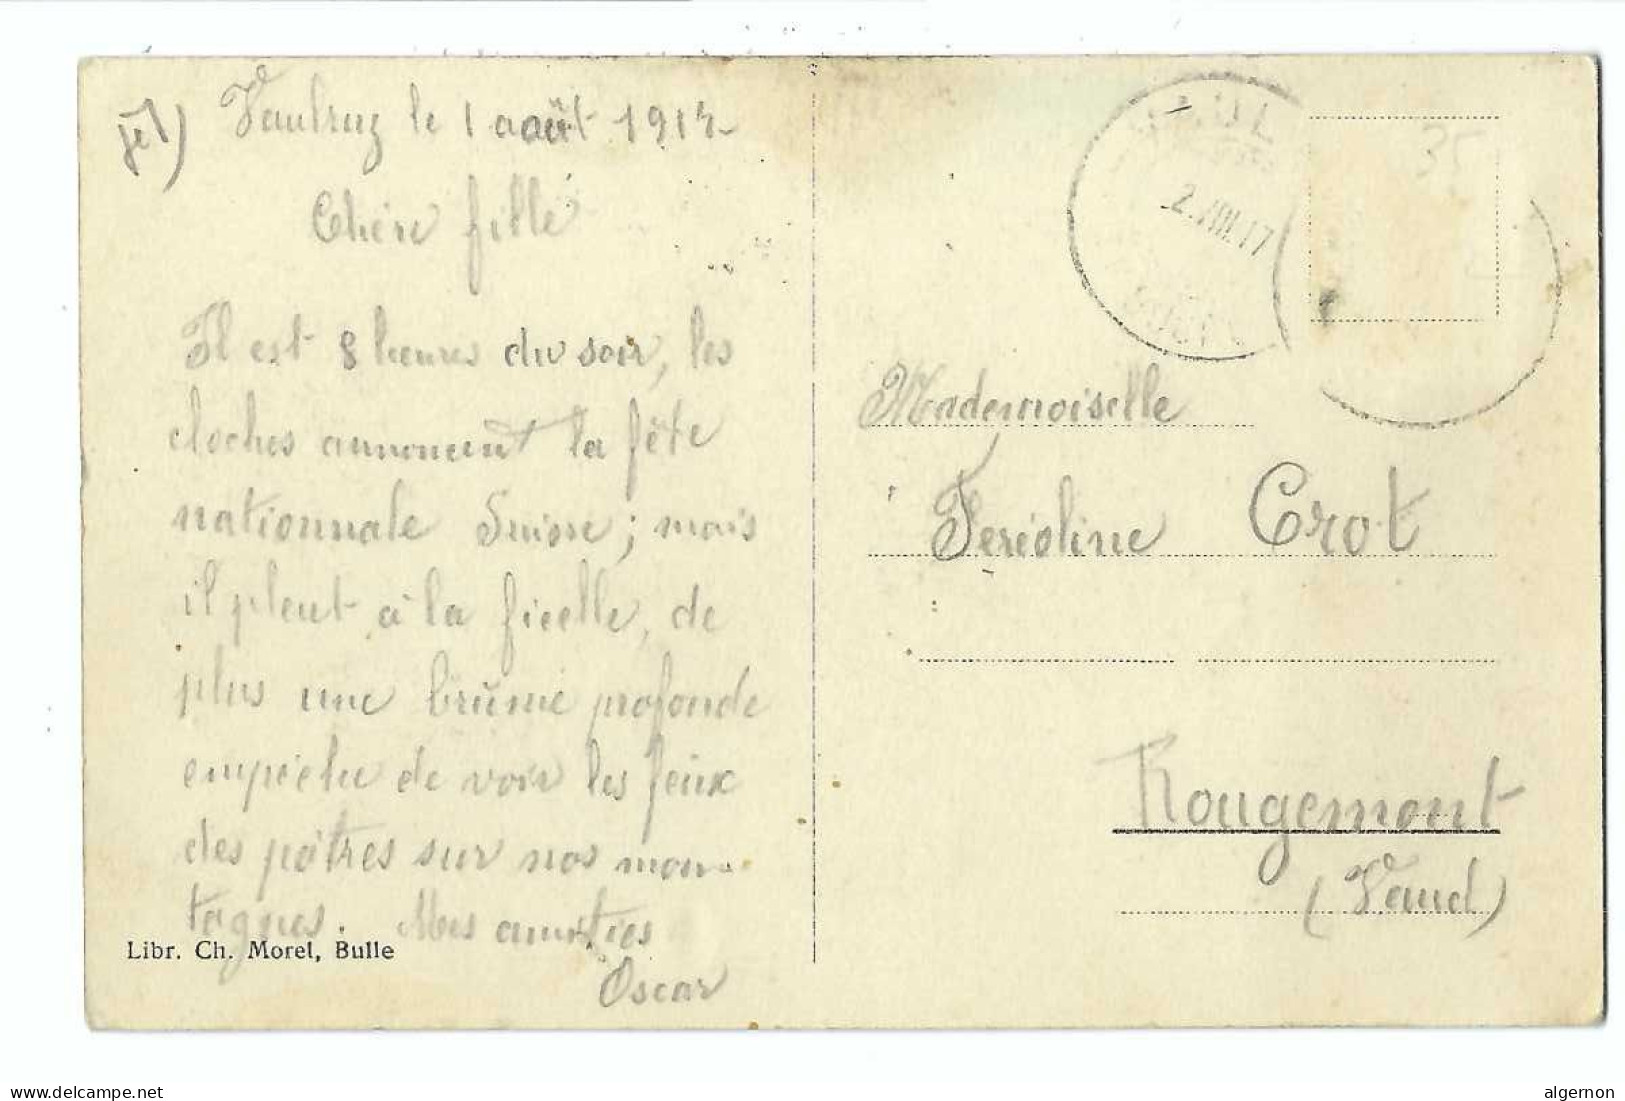 Vaulruz le 1 août 1917
Chère fille
Il est 8 heures du soir, les
cloches annoncent la fête
nationnale Suisse; mais
il pleut à la ficelle, de
plus une brûme profonde
empêche de voir les feux
des pâtres sur nos mon-
tagnes. Mes amitiés
Oscar
Libr. Ch. Morel, Bulle
2.VIII.17
35
Mademoiselle
Crot
Rougemont
(Vaud)
www.delcampe.net
algernon